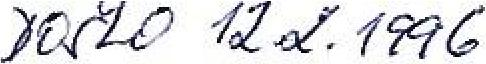 Došlo 12.2.1996